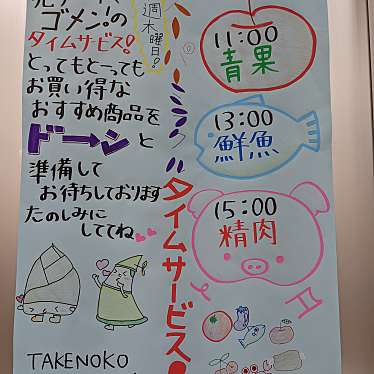 ゴメン!の
タイムサービス!
とってもとっても
お買い得な
おすすめ商品を
ド〜ンと
準備して
お待ちしております
たのしみに
しててね
TAKENOKO
週木曜日!
タイムサービス
11:00
青果
13:00
鮮魚
15:00
精肉